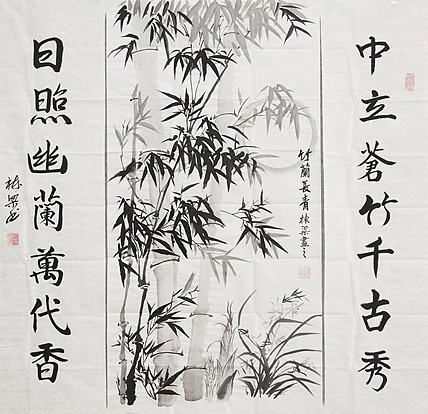 中立蒼竹千古秀
竹蘭長青棟梁畫之
日照幽蘭萬代香
棟梁